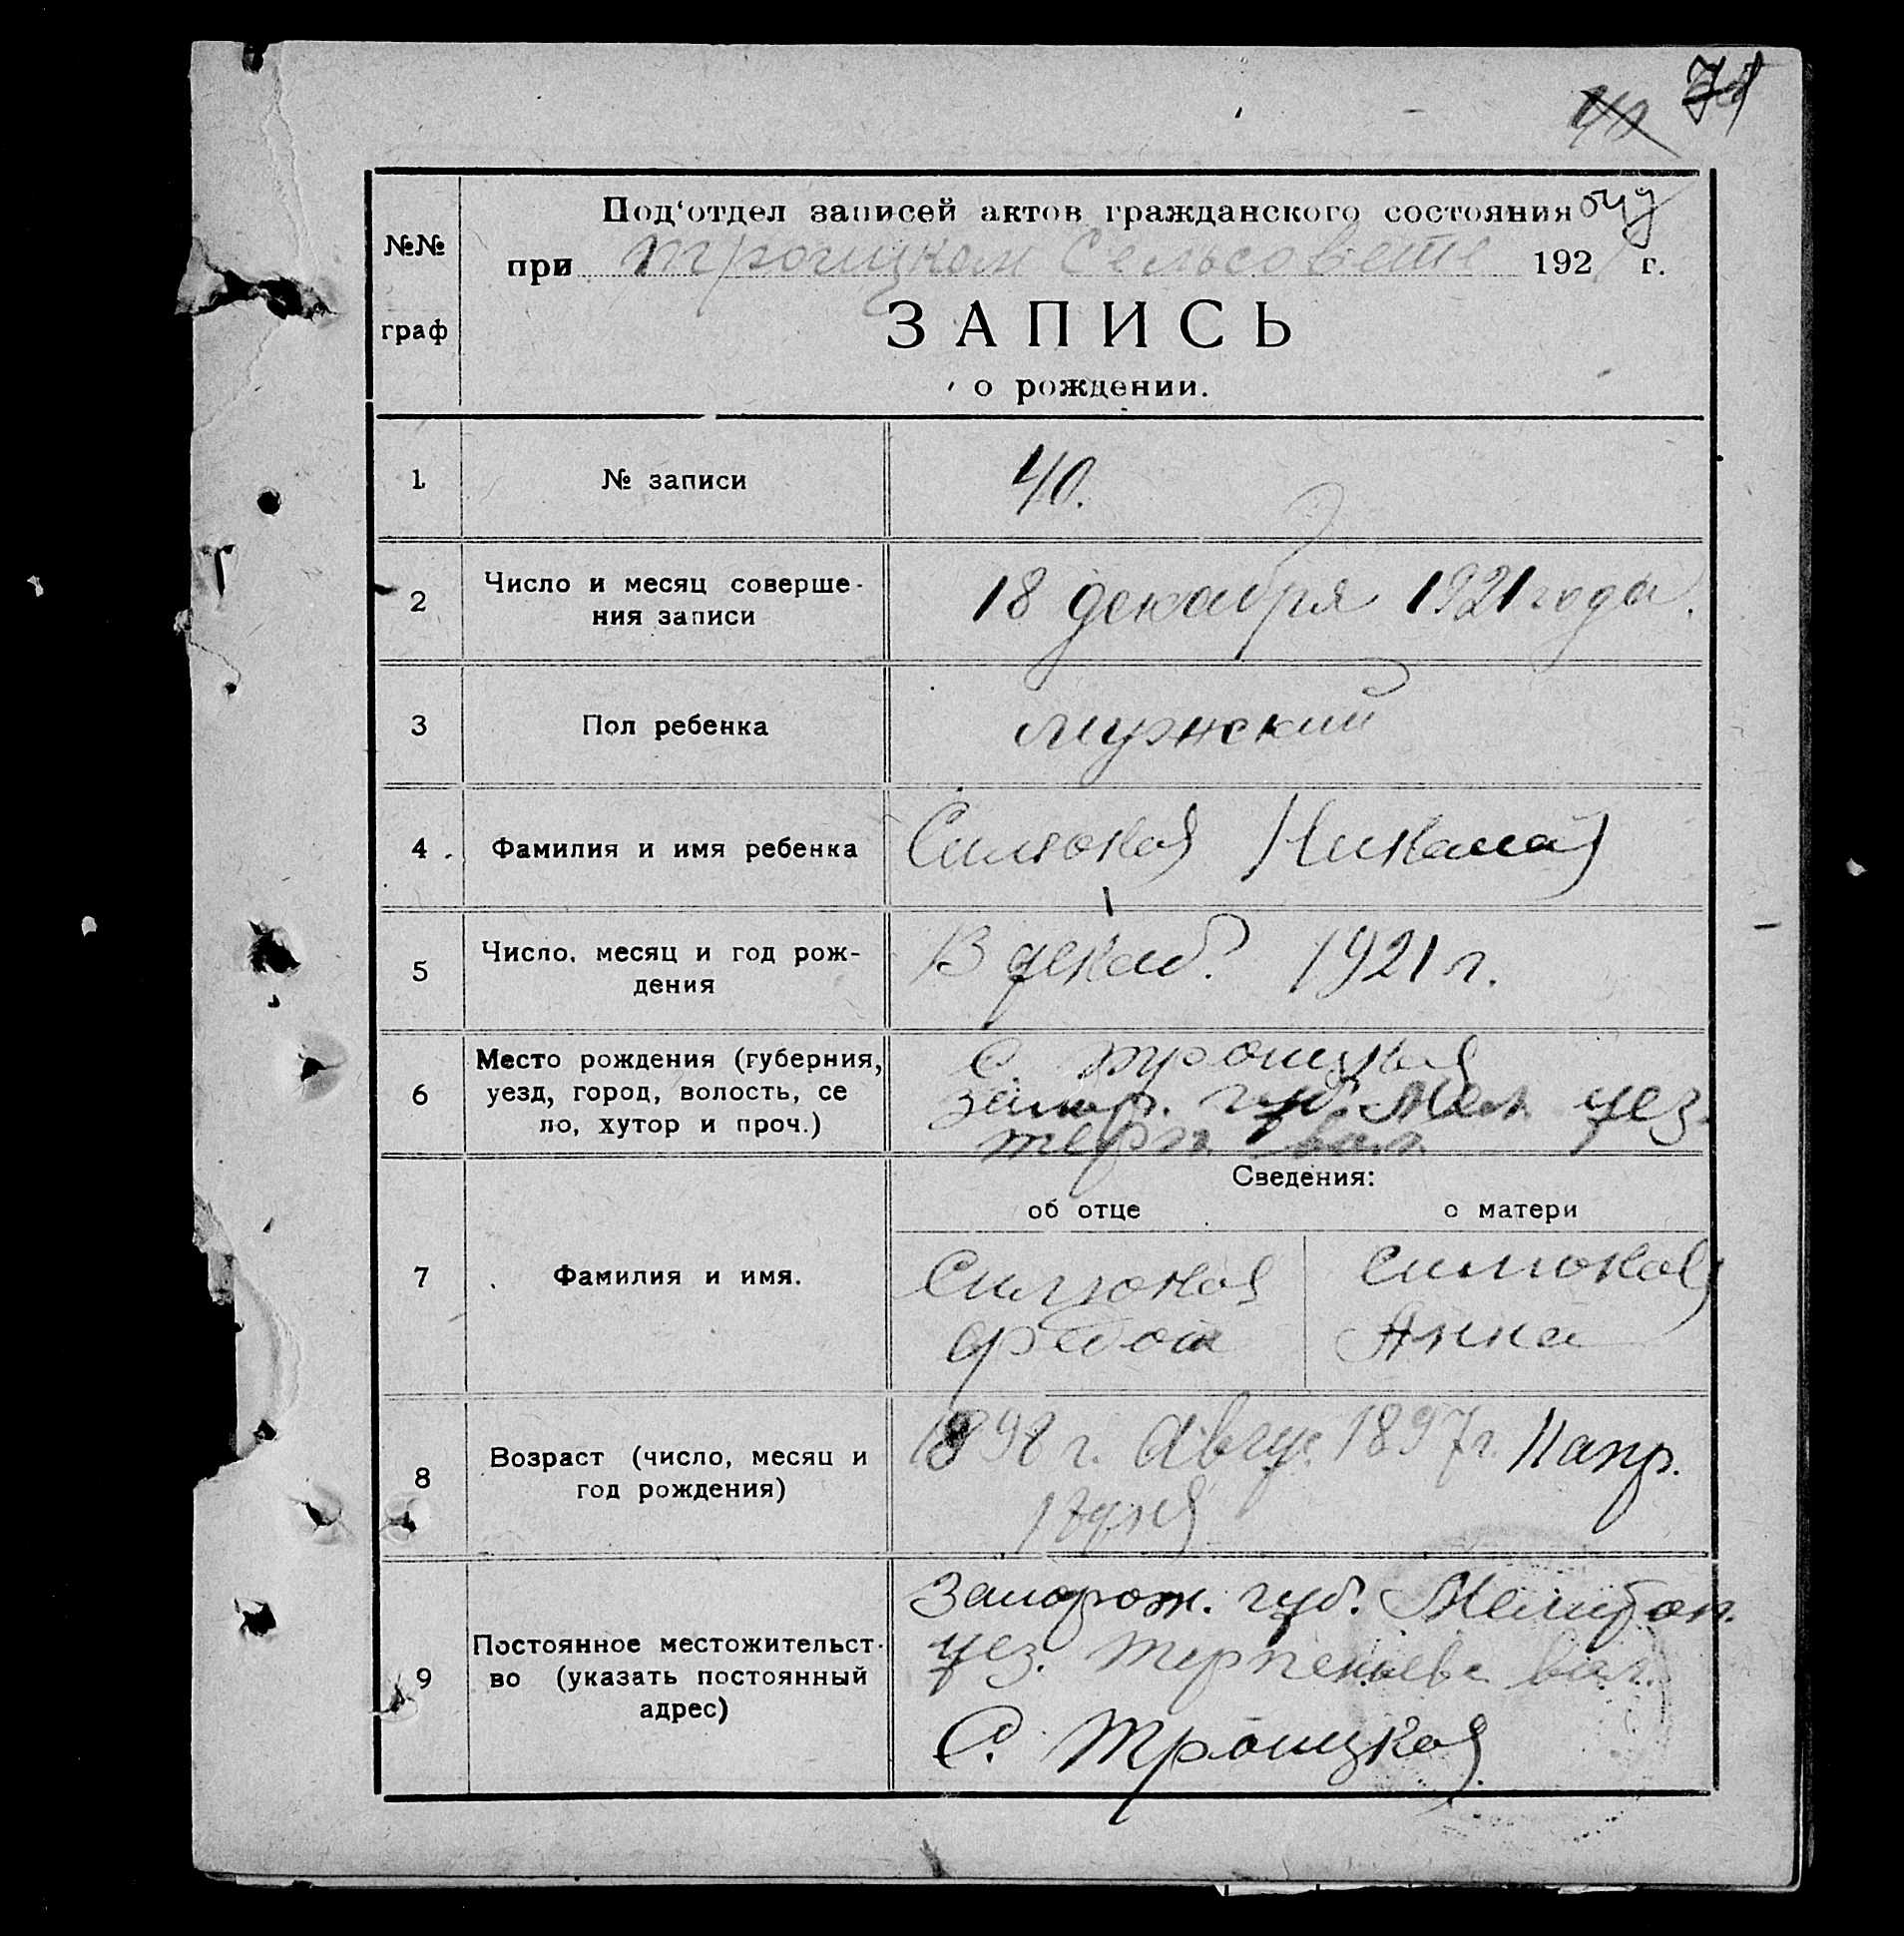 71
40
Под‘отдел записей актов гражданского состояния
№№
при Троицком Сельсовете 192 г.
граф
ЗАПИСЬ
о рождении.
1 № записи 40.
2 Число и месяц соверше-
ния записи
18 декабря 1921 года.
3 Пол ребенка мужский
4 Фамилия и имя ребенка Силюков Николай
5 Число, месяц и год рож-
дения
13 декаб. 1921 г.
6 Место рождения (губерния,
уезд, город, волость, се
ло, хутор и проч.)
С. Троицкая
Запор. губ. Мел. уез.
терп. вол.
Сведения:
об отце о матери
7 Фамилия и имя.
Силюков Силюкова
Федот Анна
8 Возраст (число, месяц и
год рождения)
1898 г. Авгус. 1897 г. 11 апр.
9 Постоянное местожительст-
во (указать постоянный
адрес)
Запорож. губ. Мелитоп.
уез. Терпеньев. вол.
С. Троицкая